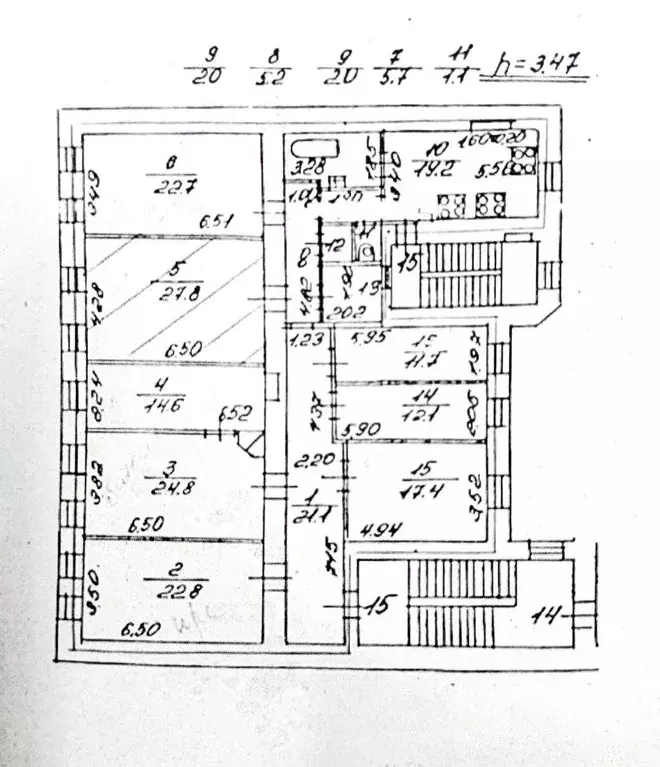 9 8 9 7 11
2.0 5.2 2.0 5.7 1.1 h=3.47
6
22.7
3.49
6.51
3.28
1.85
3.40
10
19.2
1.60
5.56
5
27.8
4.28
6.50
8
4.82
12
11
15
1.96
13
2.02
1.23
5.95
11.7
1.97
4
14.6
6.52
14
12.1
2.05
5.90
3
24.8
3.82
6.50
2.20
1
21.1
15
17.4
3.52
4.94
2
22.8
3.50
6.50
15
14